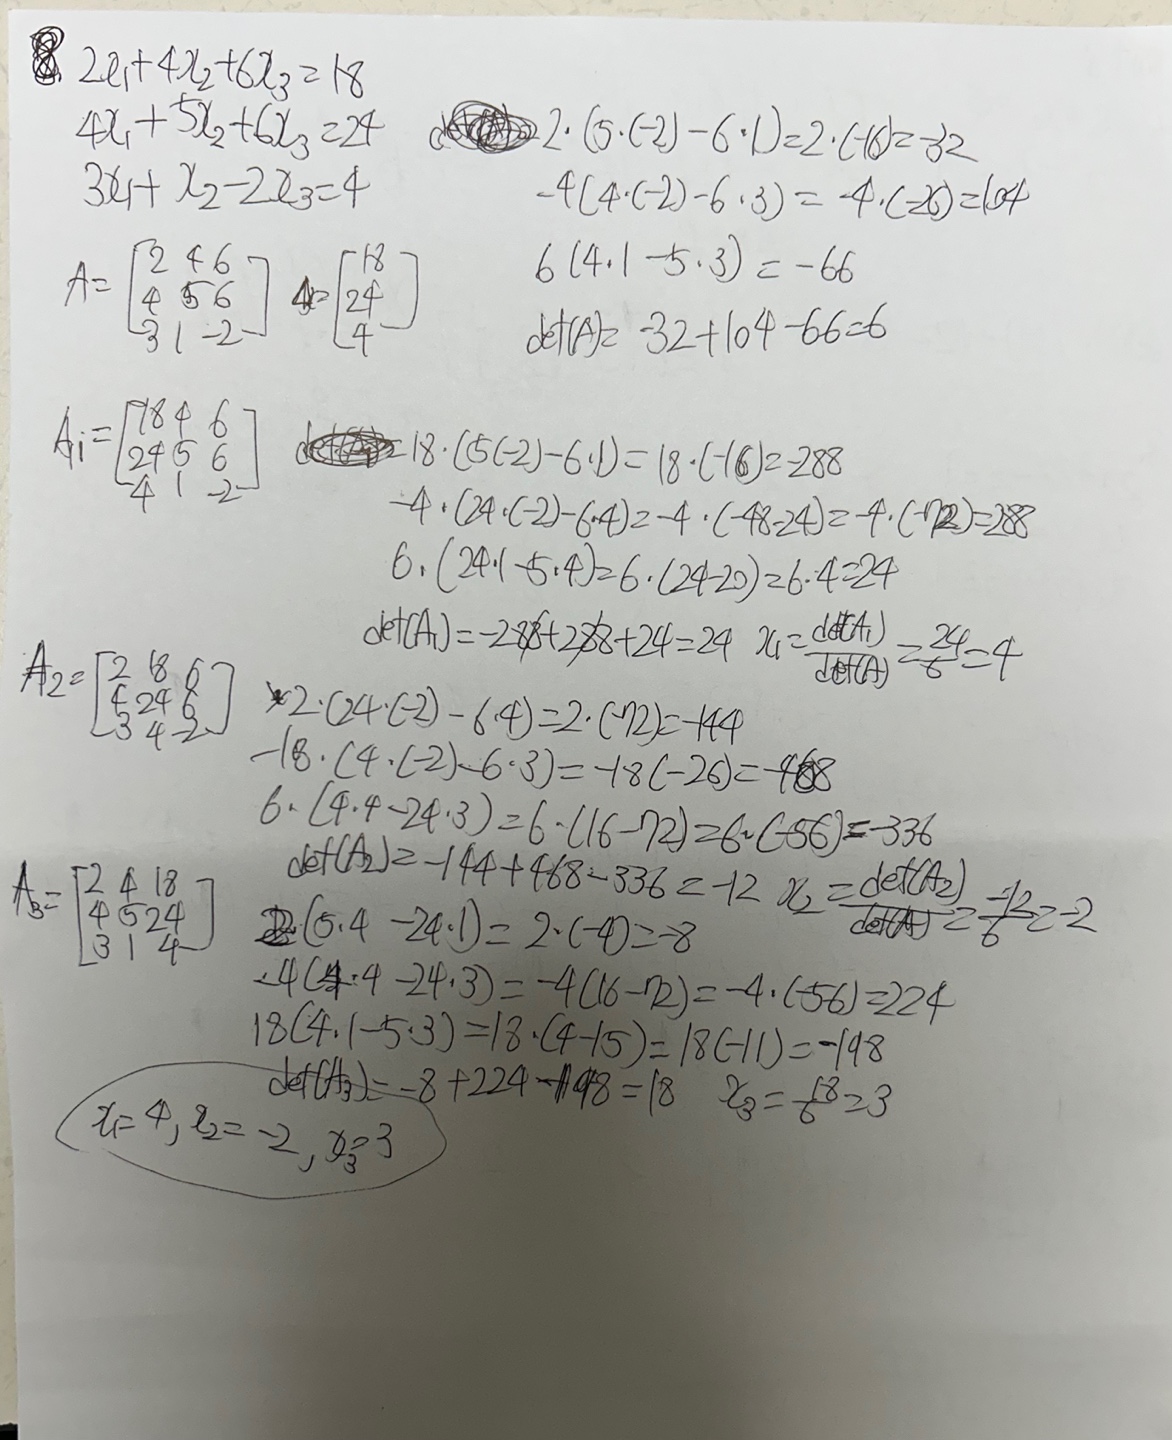 8. 2x₁+4x₂+6x₃=18
4x₁+5x₂+6x₃=24
3x₁+x₂-2x₃=4
2·(5·(-2)-6·1)=2·(-16)=-32
-4(4·(-2)-6·3)=-4·(-26)=104
6(4·1-5·3)=-66
det(A)=-32+104-66=6
A=[2 4 6
4 5 6
3 1 -2]
=[18
24
4]
A₁=[18 4 6
24 5 6
4 1 -2]
=18·(5(-2)-6·1)=18·(-16)=-288
-4·(24·(-2)-6·4)=-4·(-48-24)=-4·(-72)=288
6·(24·1-5·4)=6·(24-20)=6·4=24
det(A₁)=-288+288+24=24 x₁=det(A₁)/det(A)=24/6=4
A₂=[2 18 6
4 24 6
3 4 -2]
2·(24·(-2)-6·4)=2·(-72)=-144
-18·(4·(-2)-6·3)=-18(-26)=-468
6·(4·4-24·3)=6·(16-72)=6·(-56)=-336
det(A₂)=-144+468-336=-12 x₂=det(A₂)/det(A)=-12/6=-2
A₃=[2 4 18
4 5 24
3 1 4]
2·(5·4-24·1)=2·(-4)=-8
-4(4·4-24·3)=-4(16-72)=-4·(-56)=224
18(4·1-5·3)=18·(4-15)=18(-11)=-198
det(A₃)=-8+224-198=18 x₃=18/6=3
x₁=4, x₂=-2, x₃=3